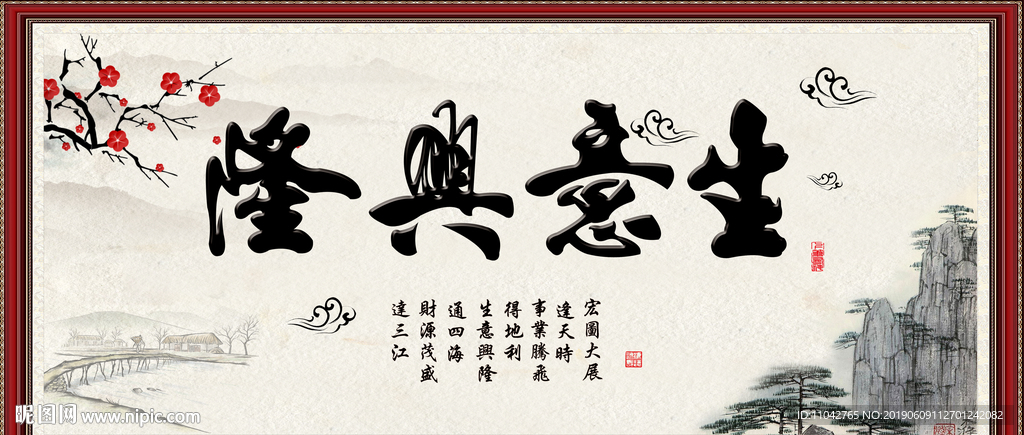 生意興隆
宏圖大展
逢天時
事業騰飛
得地利
生意興隆
通四海
財源茂盛
達三江
昵图网 www.nipic.com
ID:11042765 NO:20190609112701242082